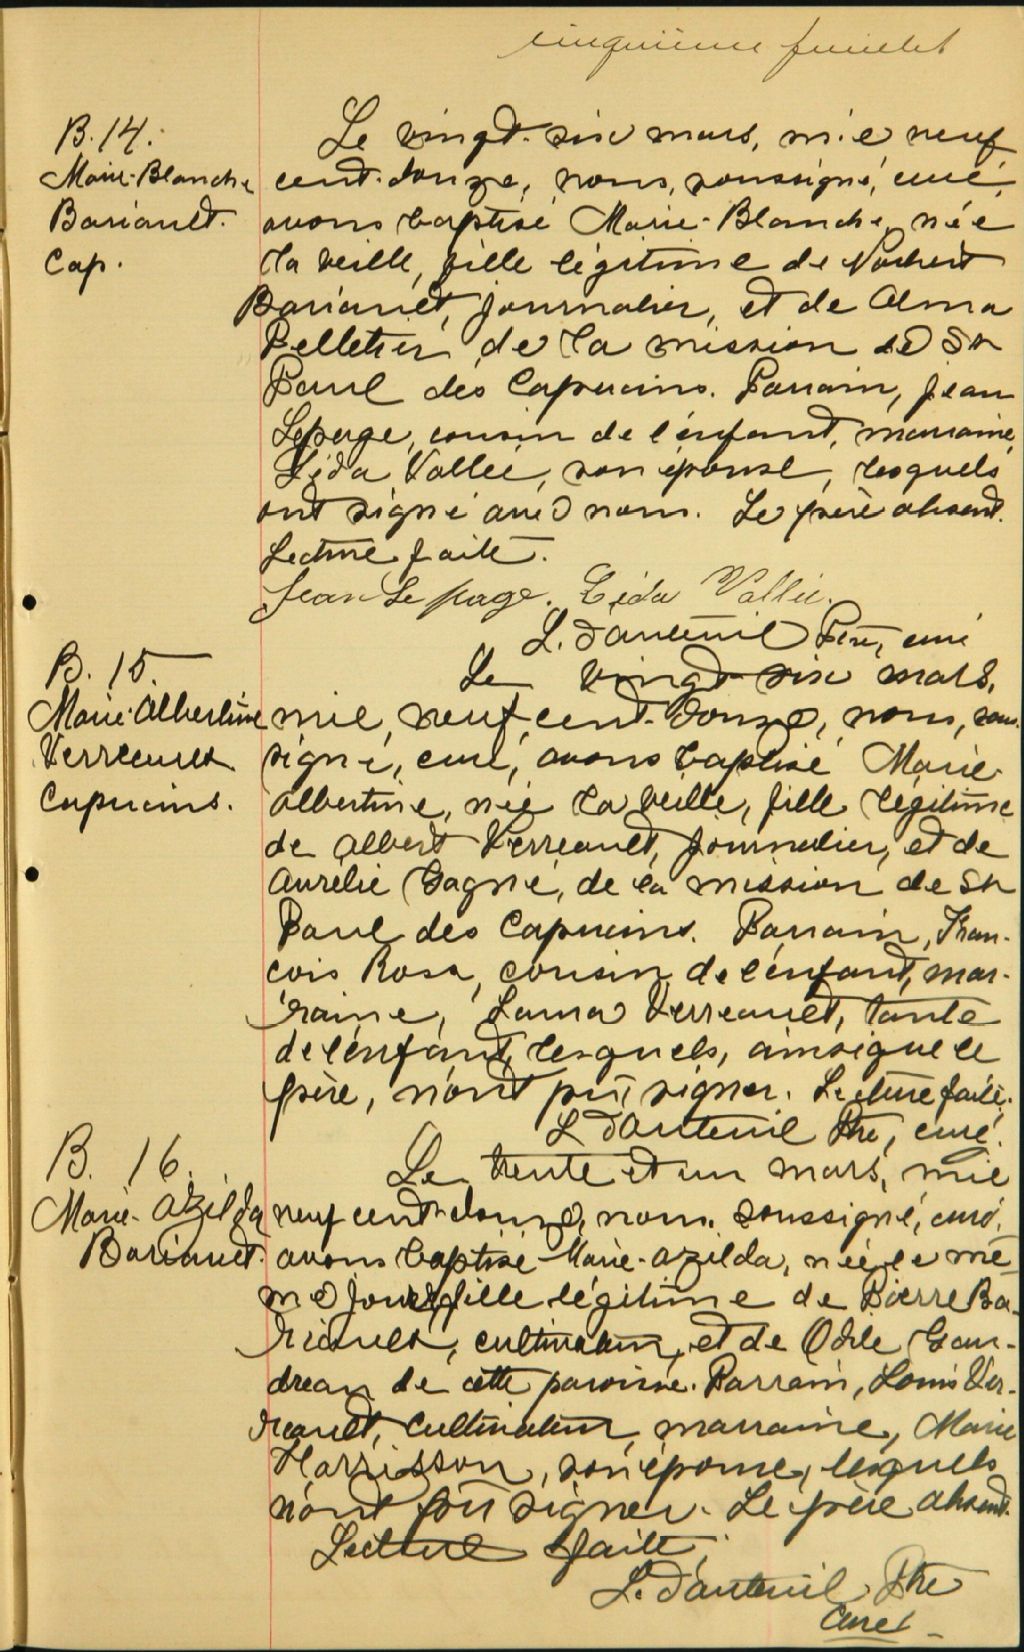 cinquième feuillet
B. 14.
Marie-Blanche
Bariault.
Cap.
Le vingt-six mars, mil neuf
cent-douze, nous, soussigné, curé,
avons baptisé Marie-Blanche, née
la veille, fille légitime de Norbert
Bariault, journalier, et de Alma
Pelletier de la mission de St
Paul des Capucins. Parrain, Jean
Lepage, cousin de l'enfant, marraine,
Léda Vallée, son épouse, lesquels
ont signé avec nous. Le père absent.
Lecture faite.
Jean Lepage. Léda Vallée.
L. D'auteuil Ptre, curé
B. 15.
Marie-Albertine
Verreault
Capucins.
Le vingt-six mars,
mil neuf cent-douze, nous, sous-
signé, curé, avons baptisé Marie
Albertine, née la veille, fille légitime
de Albert Verreault, journalier, et de
Aurélie Gagné, de la mission de St
Paul des Capucins. Parrain, Fran-
cois Ross, cousin de l'enfant, mar-
raine, Laura Verreault, tante
de l'enfant, lesquels, ainsi que le
père, n'ont pu signer. Lecture faite.
L. D'auteuil Ptre, curé.
B. 16.
Marie-Azilda
Bariault.
Le trente et un mars, mil
neuf cent-douze, nous, soussigné, curé,
avons baptisé Marie-Azilda, née le mê-
me jour, fille légitime de Pierre Ba-
riault, cultivateur, et de Odile Gau-
dreau de cette paroisse. Parrain, Louis Ver-
reault, cultivateur, marraine, Marie
Harrisson, son épouse, lesquels
n'ont pu signer. Le père absent.
Lecture faite.
L. D'auteuil Ptre
Curé